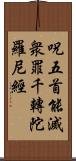 呪五首能滅
衆罪千轉陀
羅尼經